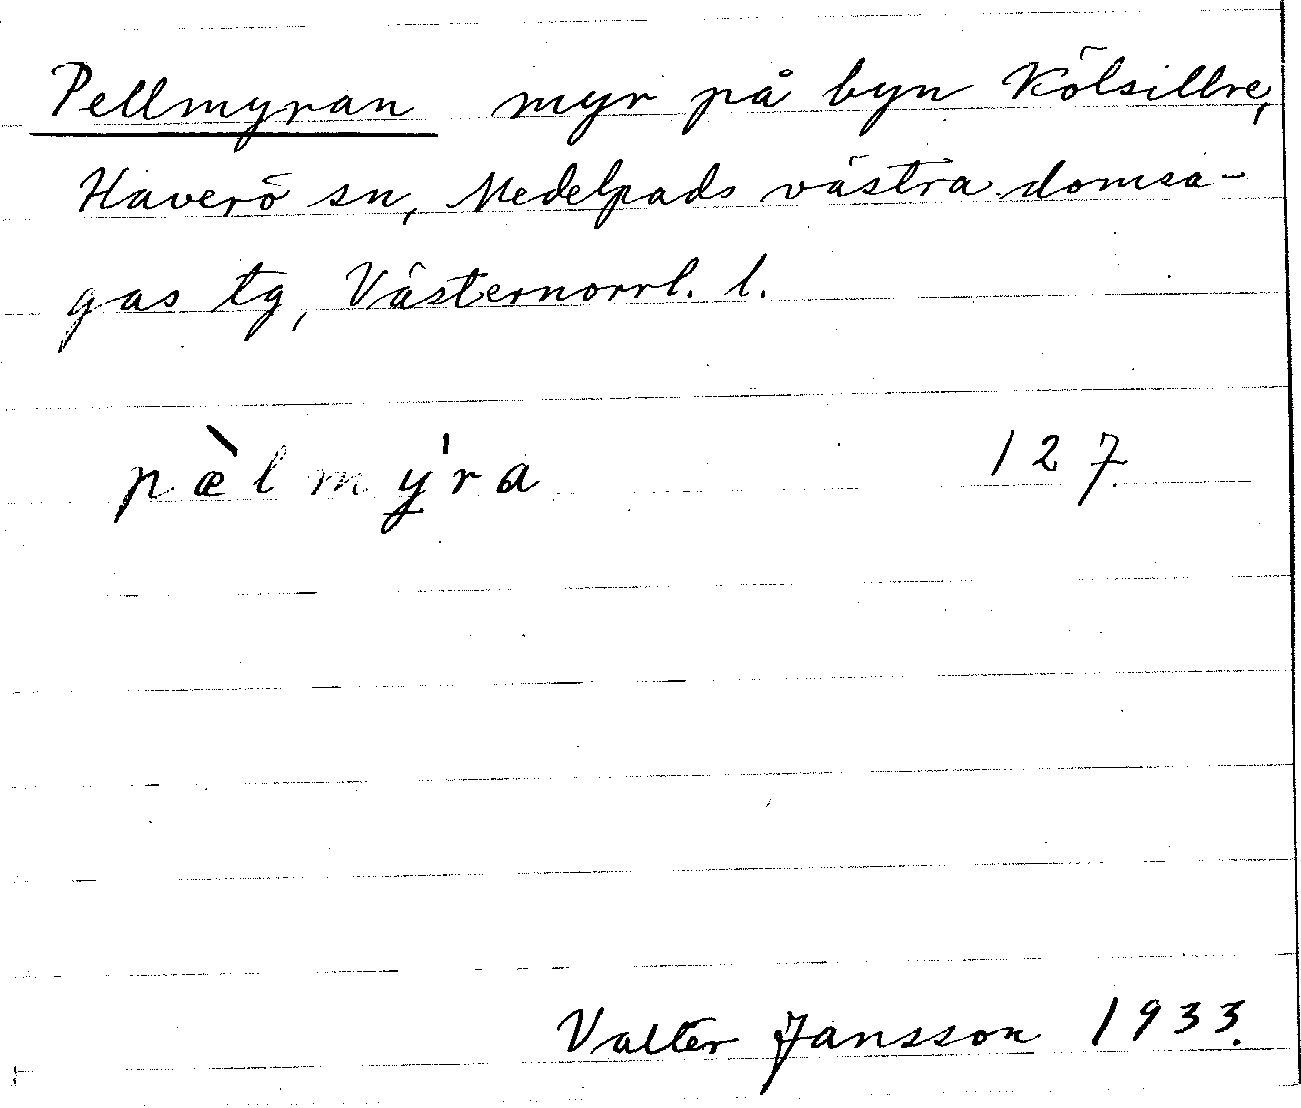 Pellmyran myr på byn Kölsillre,
Haverö sn, Medelpads västra domsa-
gas tg, Västernorrl. l.
pæ̀lmy̍ra 127.
Valter Jansson 1933.